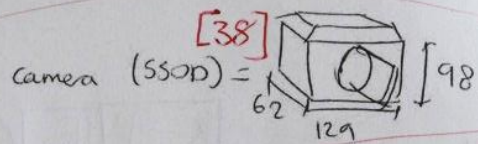 [38]
camera (SSOD) =
98
62
129